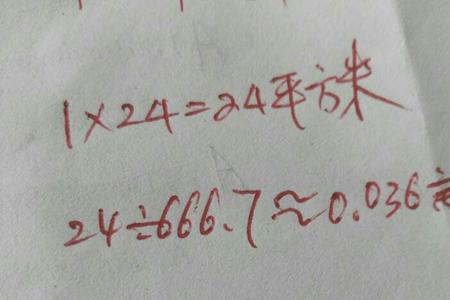 1×24=24平方米
24÷666.7≈0.036亩